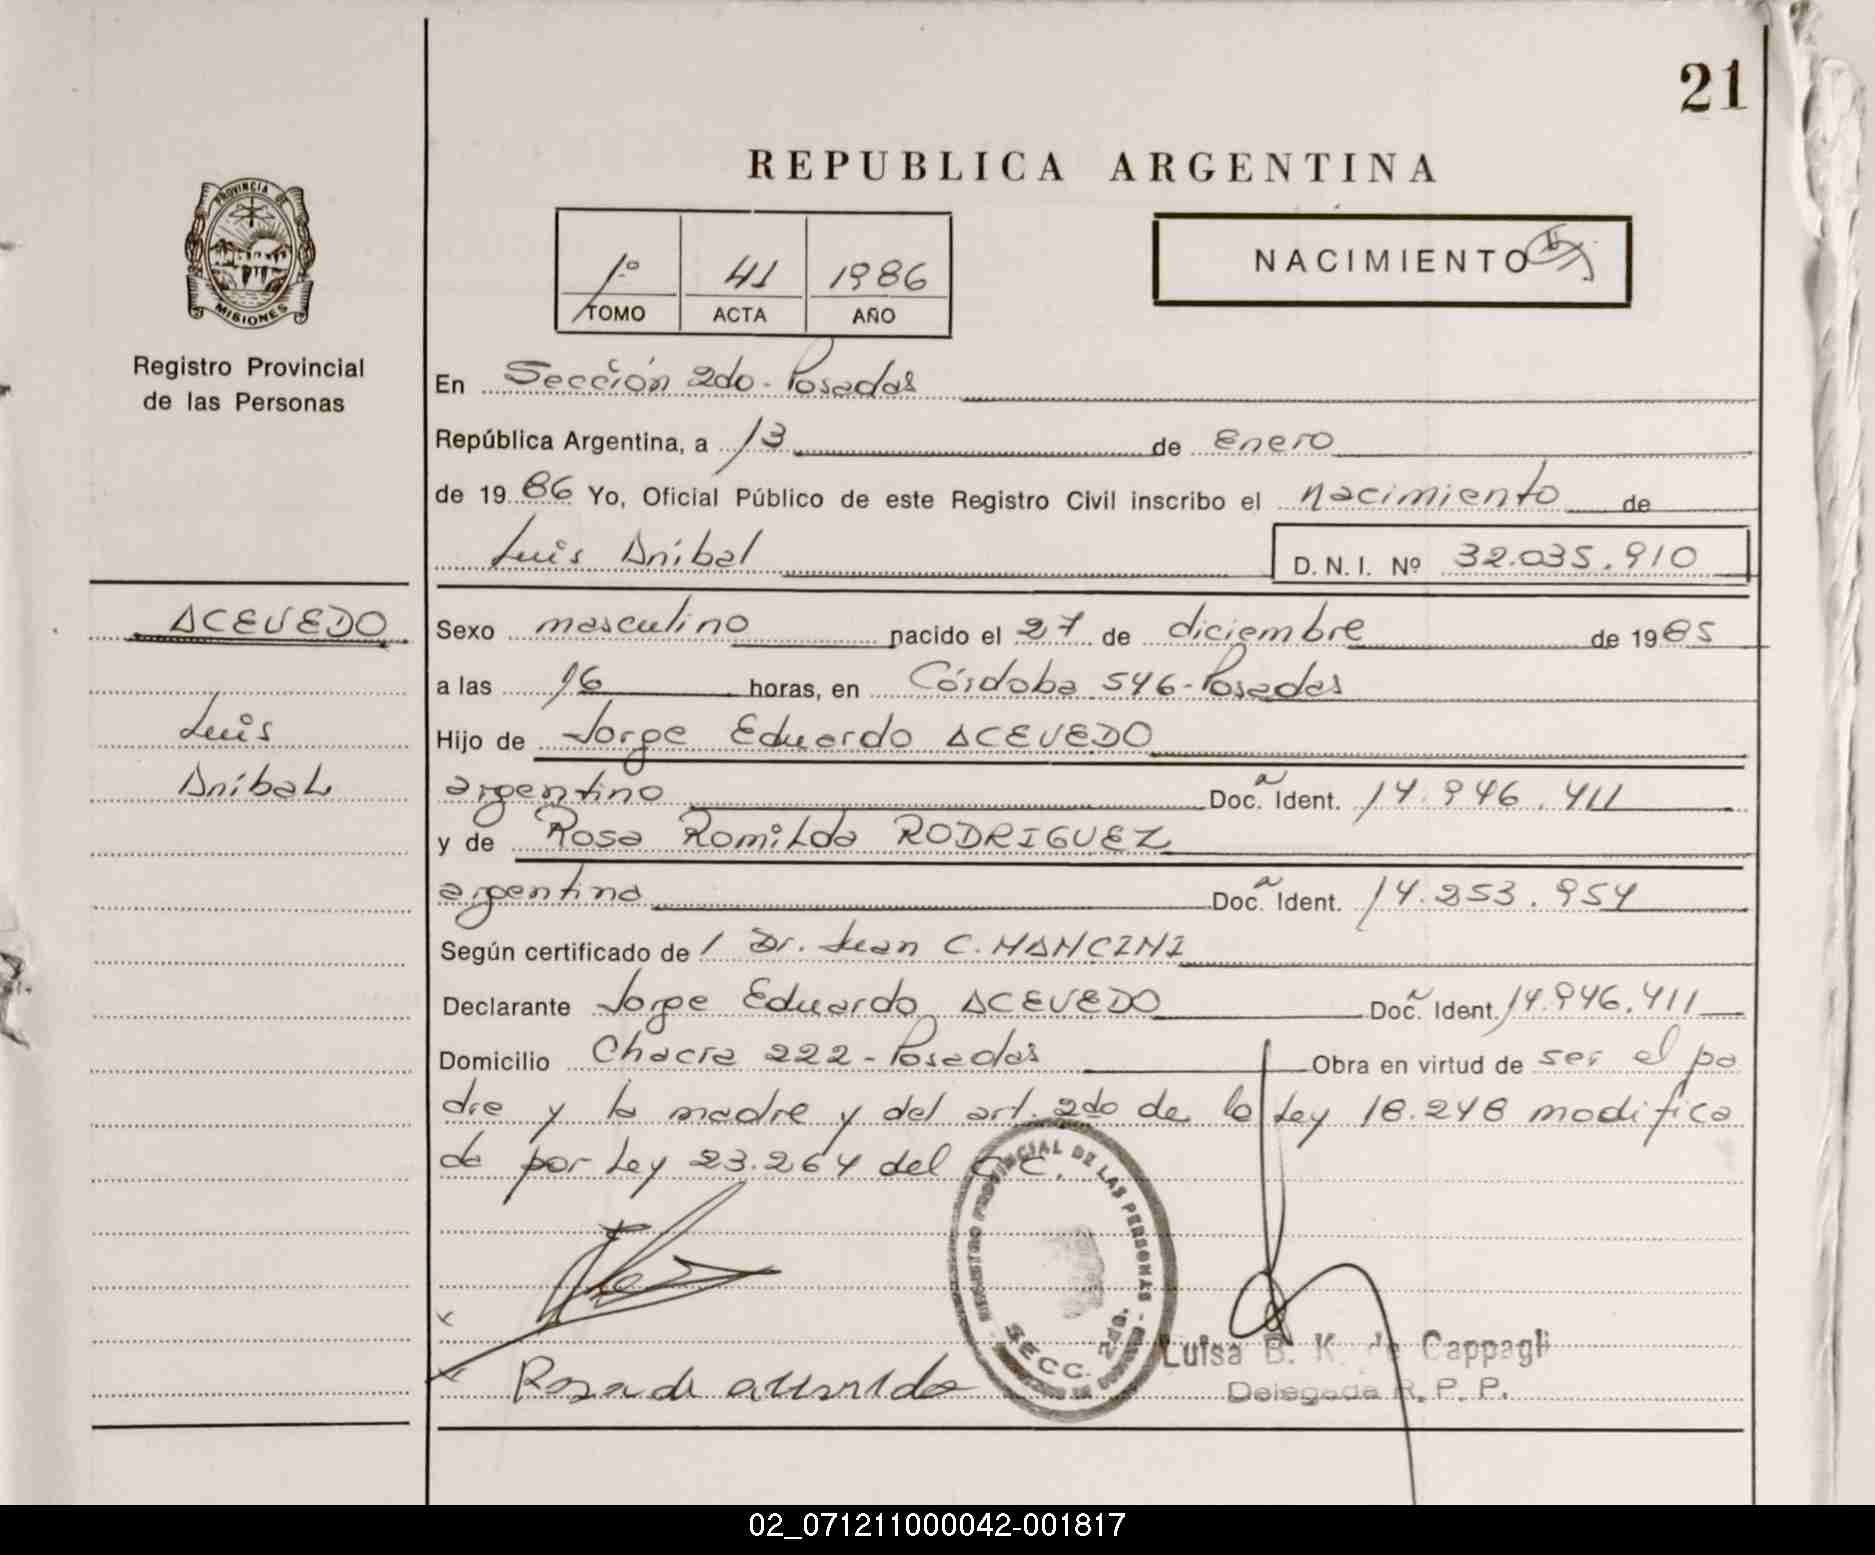 21
REPUBLICA ARGENTINA
PROVINCIA DE
MISIONES
Registro Provincial
de las Personas
1º 41 1986
TOMO ACTA AÑO
NACIMIENTO
En Sección 2do - Posadas
República Argentina, a 13 de Enero
de 1986 Yo, Oficial Público de este Registro Civil inscribo el nacimiento de
Luis Aníbal D. N. I. Nº 32.035.910
ACEVEDO
Luis
Aníbal
Sexo masculino nacido el 27 de diciembre de 1985
a las 16 horas, en Córdoba 546 - Posadas
Hijo de Jorge Eduardo ACEVEDO
argentino Doc. Ident. 14.946.411
y de Rosa Romilda RODRIGUEZ
argentina Doc. Ident. 14.253.954
Según certificado de Dr. Juan C. MANCINI
Declarante Jorge Eduardo ACEVEDO Doc. Ident. 14.946.411
Domicilio Chacra 222 - Posadas Obra en virtud de ser el pa
dre y la madre y del art. 2do de la Ley 18.248 modifica
da por Ley 23.264 del C.C.
REGISTRO PROVINCIAL DE LAS PERSONAS
SECC. 2da.
Rosa de acevedo
Luisa B. K. de Cappagli
Delegada R. P. P.
02_071211000042-001817